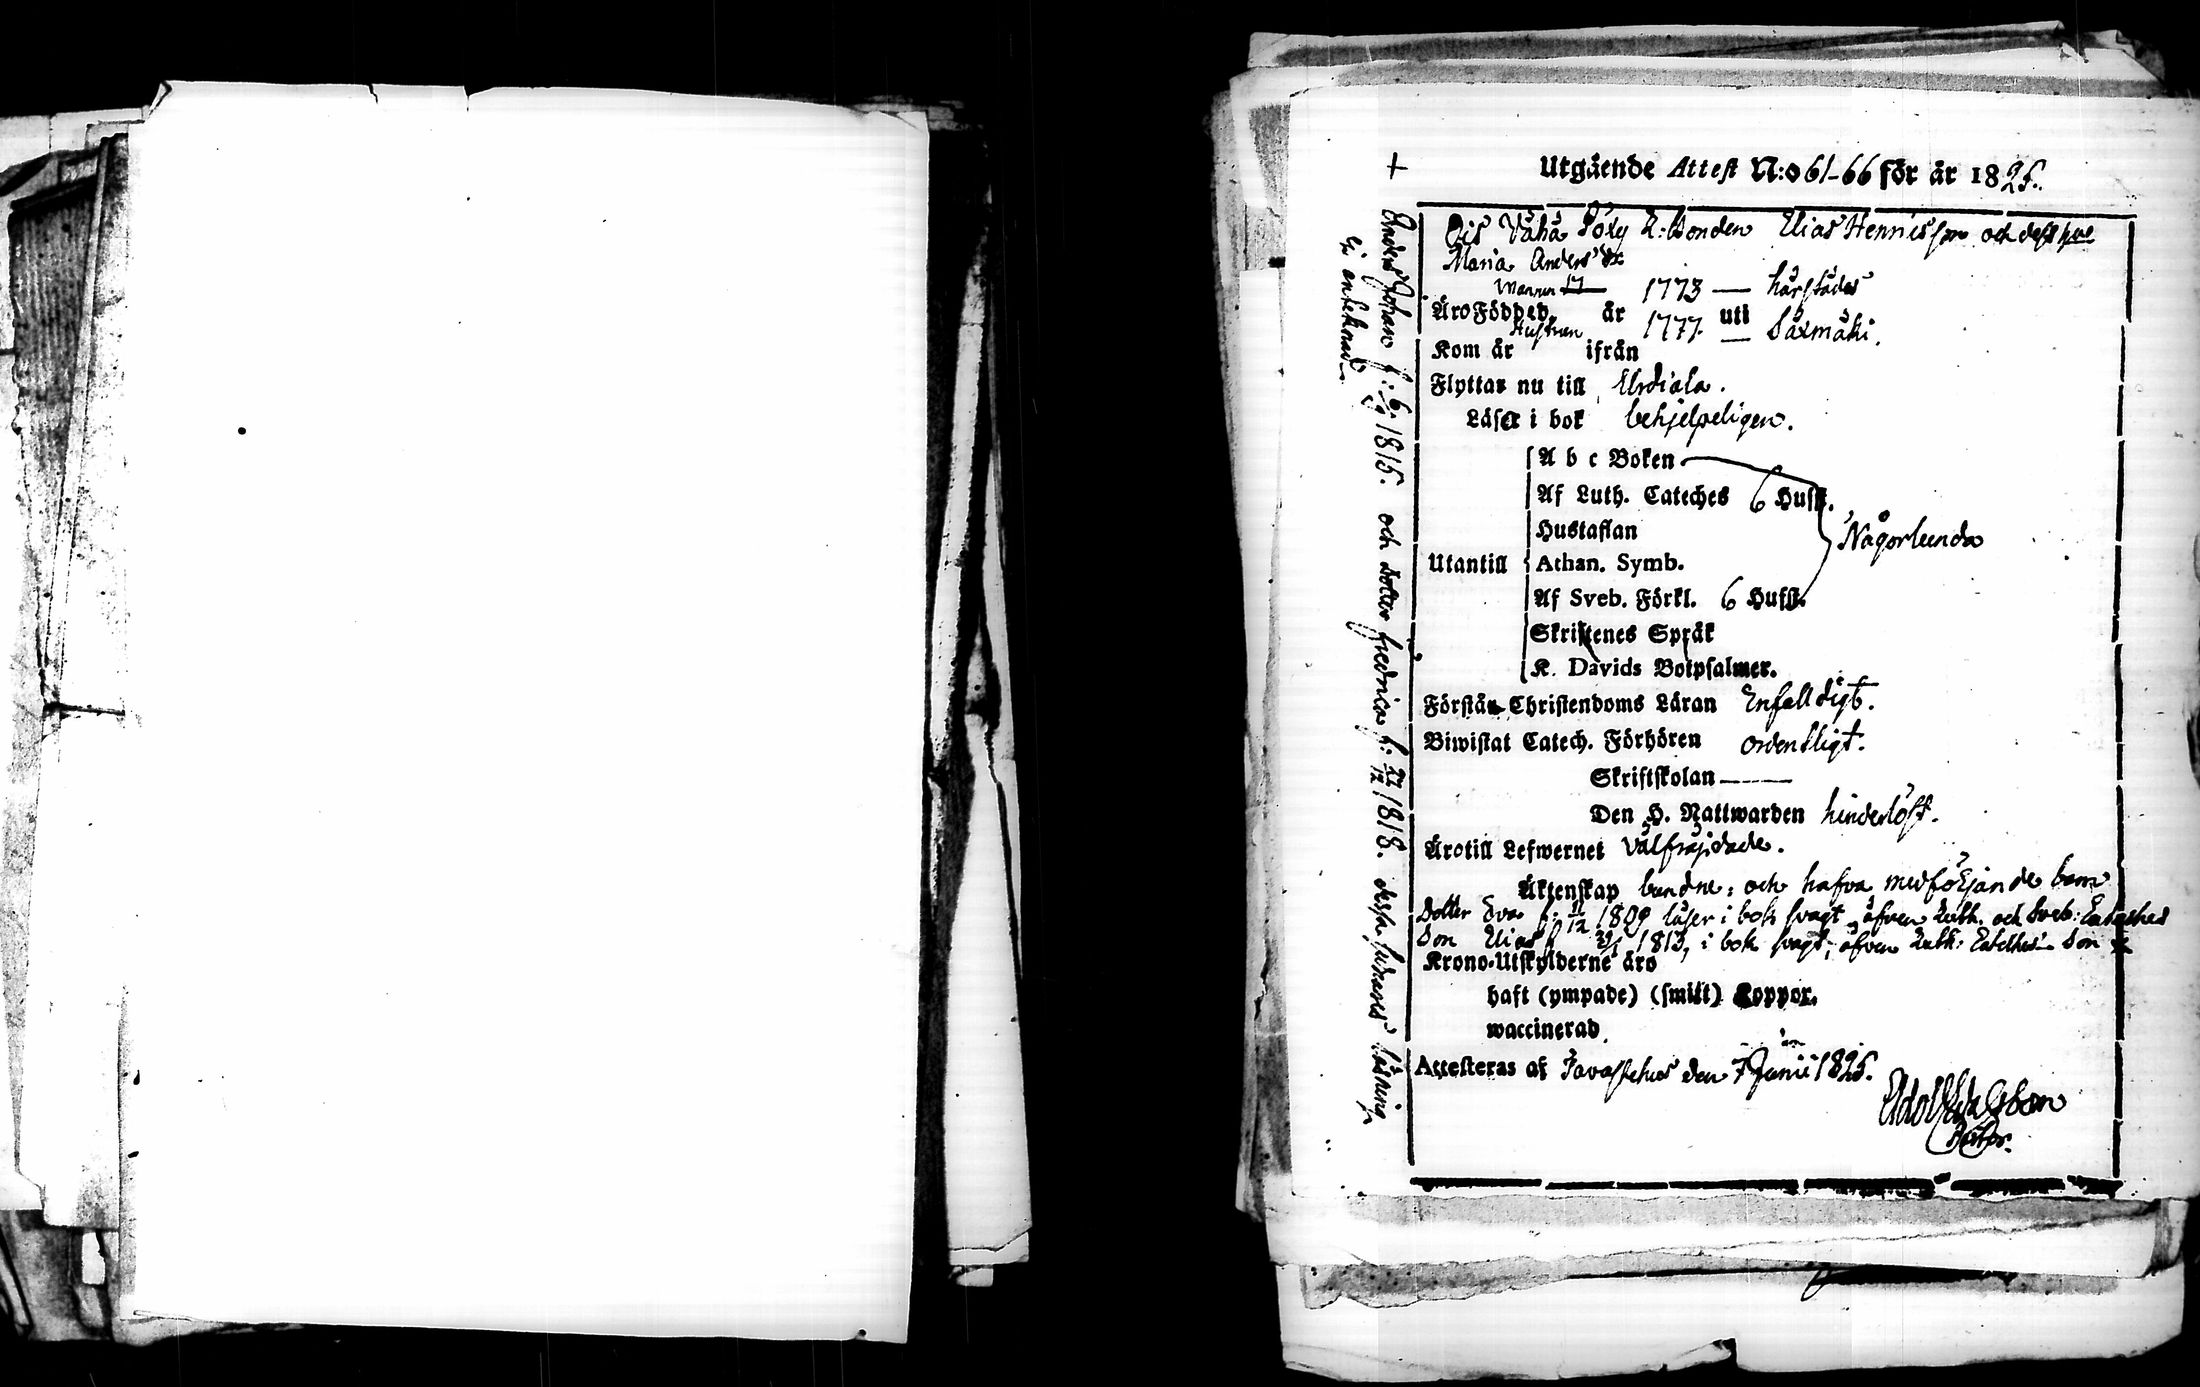 + Utgående Attest N:o 61-66 för år 1825.
Ois Vähä Pöly R: Bonden Elias Hennisson och dess hue
Maria Anders dr
Mannen 1773 — härstädes
Äro Födde år uti
Hustrun 1777 — Säxmäki.
Kom år ifrån
Flyttar nu till Urdiala.
Läser i bok behjelpeligen.
A b c Boken
Af Luth. Cateches 6 Hufst.
Hustaflan
Utantill Athan. Symb. Någorlunda
Af Sveb. Förkl. 6 Hufst.
Skriftenes Språk
K. Davids Botpsalmer.
Förstår Christendoms Läran Enfalldigt.
Biwistat Catech. Förhören ordentligt.
Skriftskolan ———
Den H. Nattwarden hinderlöst.
Äro till Lefwernet Välfräjdade.
Äktenskap bundne: och hafva medföljande barn
Dotter Eva f. 11/12 1809 läser i bok svagt, äfven Luth. och Sveb: Cateches
Son Elias f 1813, i bok svagt, äfven Luth: Catches Son
Krono-Utskylderne äro
haft (ympade) (smitt) Koppor.
waccinerad
Attesteras af Tavastehus den 7 Junii 1825.
Adolf
Anders Johan f: 6/9 1815. och dotter Fredrica f. 27/12 1818. dessa sednares läsning
Ej antecknad